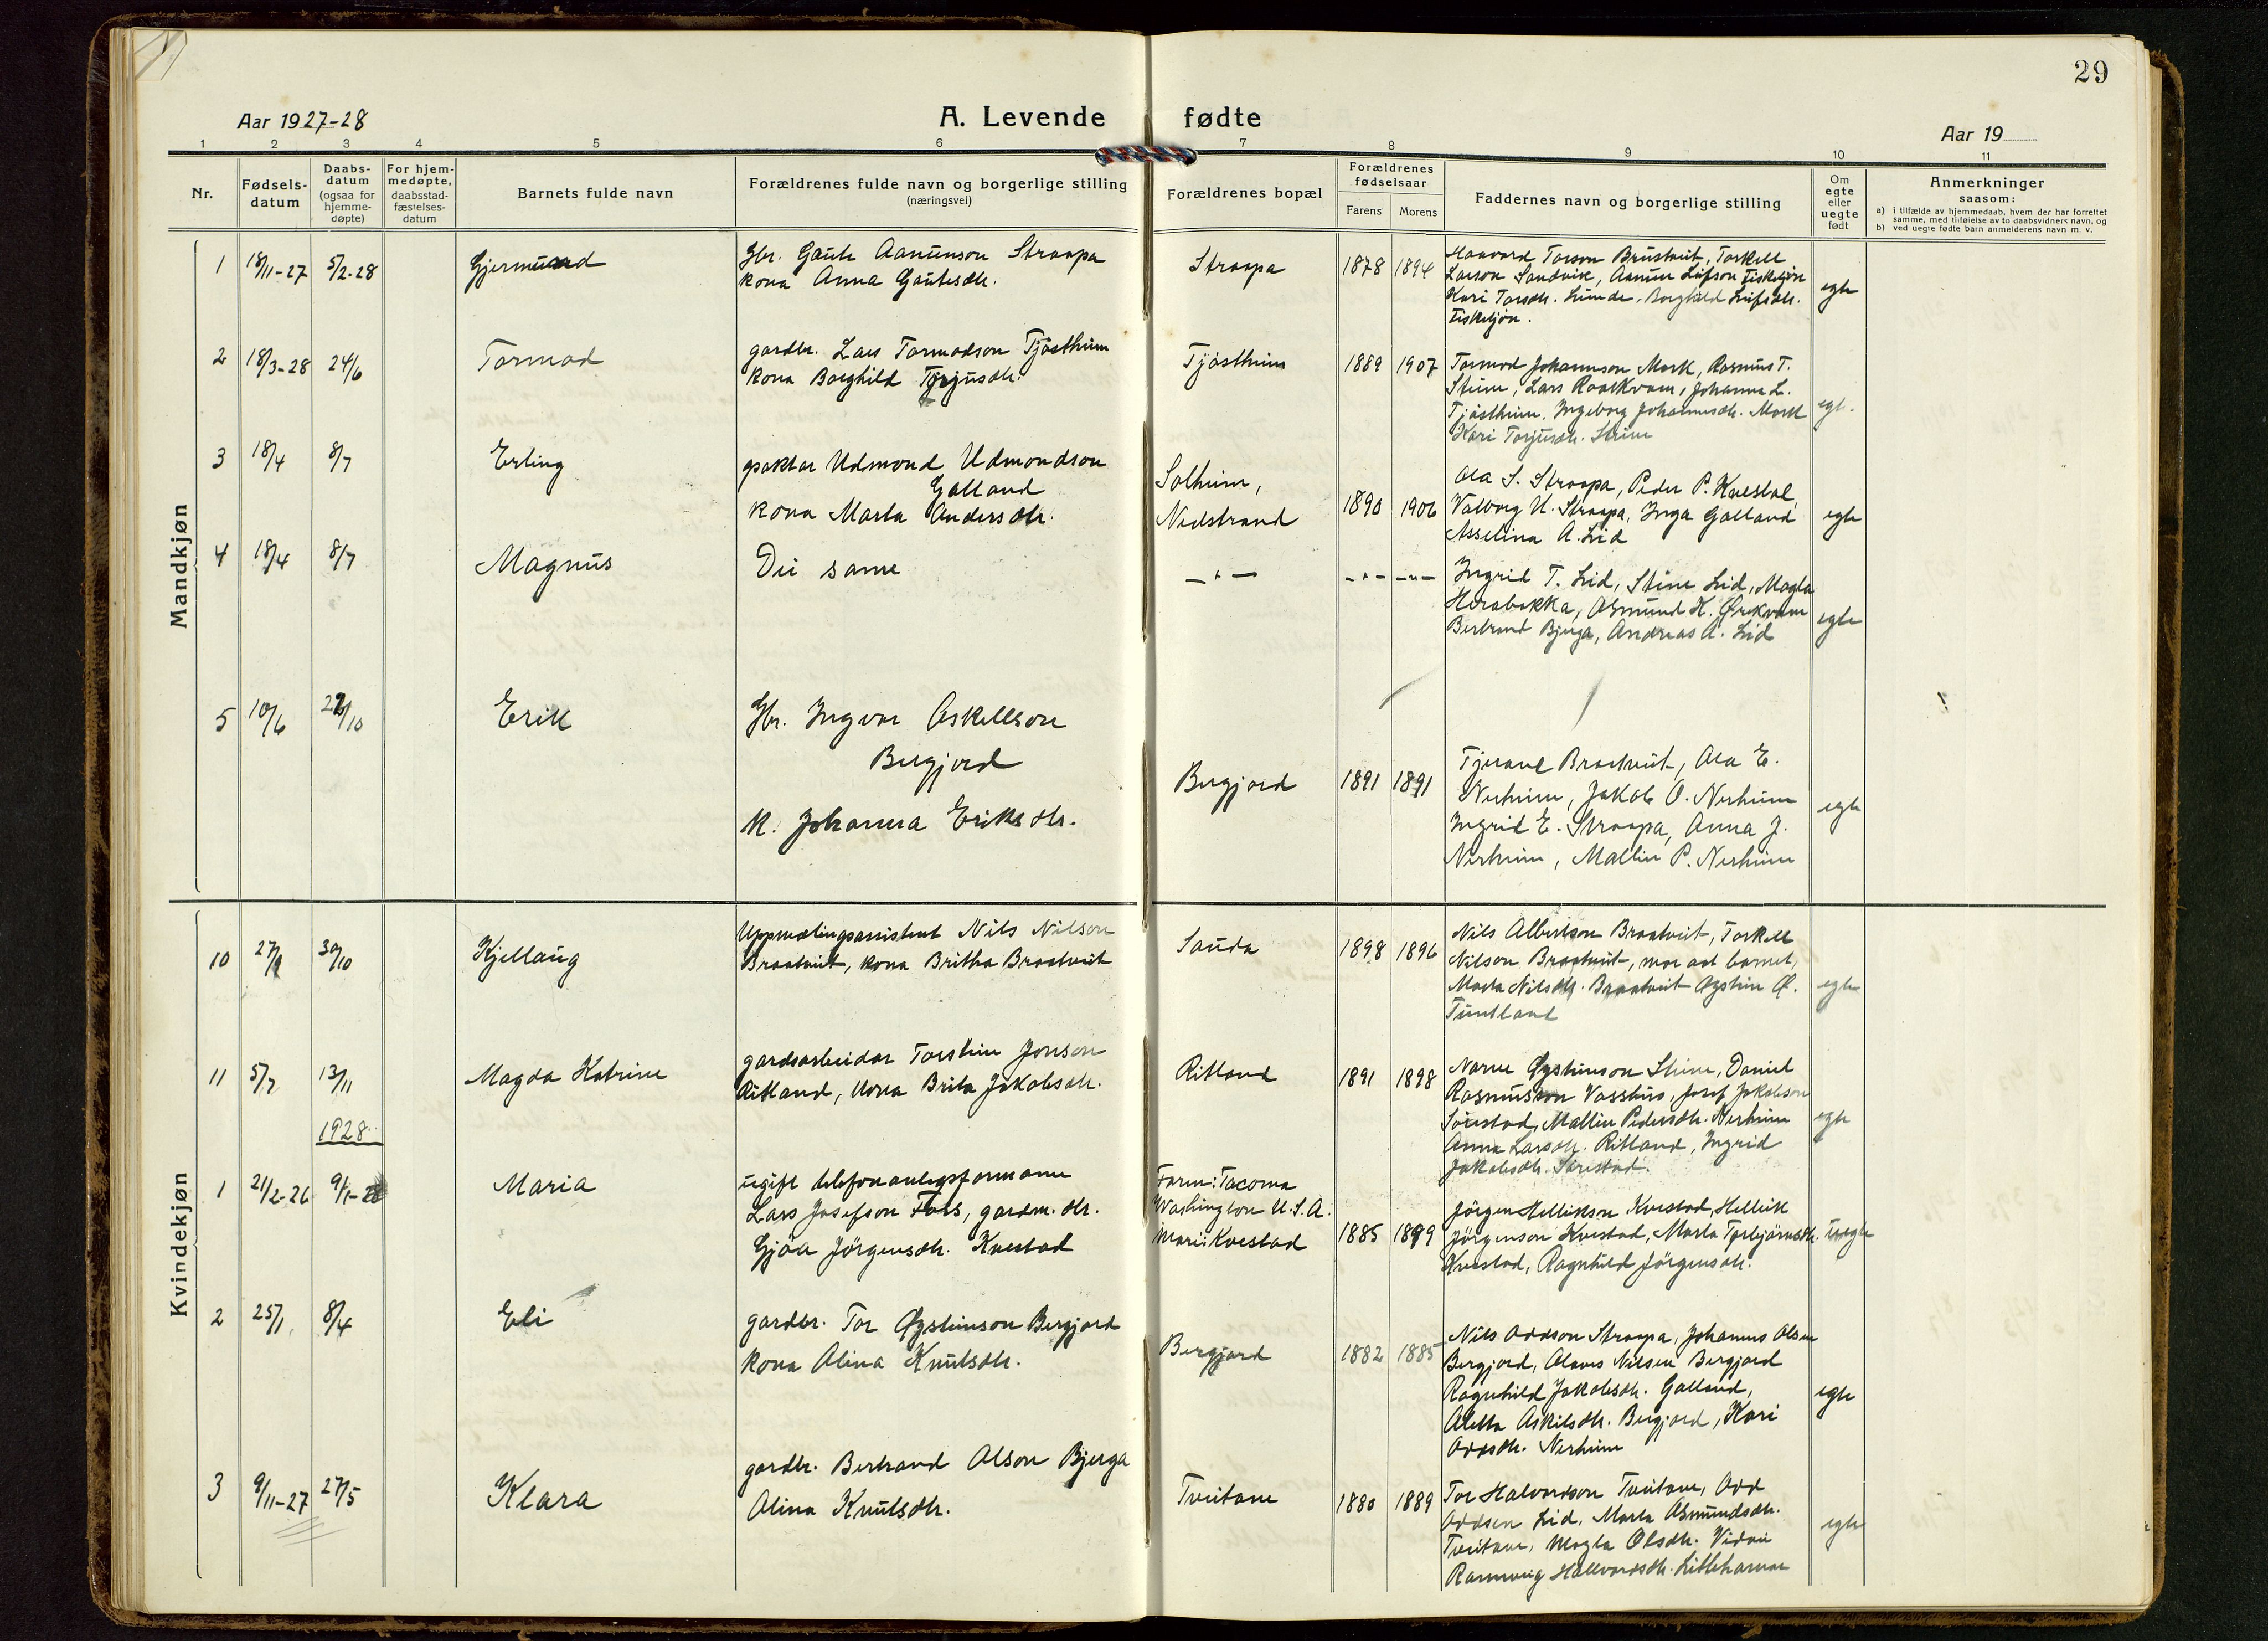 29
Aar 1927-28
A. Levende fødte
Aar 19
1 2 3 4 5 6 7 8 9 10 11
Nr.
Fødsels-
datum
Daabs-
datum
(ogsaa for
hjemme-
døpte)
For hjem-
medøpte,
daabsstad-
fæstelses-
datum
Barnets fulde navn
Forældrenes fulde navn og borgerlige stilling
(næringsvei)
Forældrenes bopæl
Forældrenes
fødselsaar
Farens Morens
Faddernes navn og borgerlige stilling
Om
egte
eller
uegte
født
Anmerkninger
saasom:
a) i tilfælde av hjemmedaab, hvem der har forrettet
samme, med tilføielse av to daabsvidners navn, og
b) ved uegte fødte barn anmelderens navn m. v.
Mandkjøn
1 18/11-27 5/2-28 Gjermund
Gbr. Gaute Aamunson Straapa
kona Anna Gautesdtr.
Straapa 1878 1894
Haavard Torson Brustveit, Torkell
Larson Sandvik, Aamun Leifson Fisketjøn
Kari Torsdtr. Lunde, Borghild Leifsdtr.
Fisketjøn.
egte
2 18/3-28 24/6 Tormod
gardbr. Lars Tormodson Tjøstheim
kona Borghild Torjusdtr.
Tjøstheim 1889 1907
Tormod Johannson Mork, Rasmus T.
Steine, Lars Raakvam, Johanna L.
Tjøstheim, Ingeborg Johannesdtr. Mork
Kari Torjusdtr. Steine
egt.
3 18/4 8/7 Erling
gpaktar Udmond Udmondson
Galland
kona Marta Andersdtr.
Solheim,
Nedstrand
1890 1906
Ola S. Straapa, Peder P. Kvestal,
Valborg U. Straapa, Inga Galland
Asselina A. Lid
egte
4 18/4 8/7 Magnus
Dei same
- " - - " - - " -
Ingrid T. Lid, Stine Lid, Magla
Herabakka, Asmund K. Ørekvam
Bertrand Bjerga, Andreas A. Lid
egte
5 10/6 /10 Erik
Gbr. Ingvar Askellson
Bergjord
k. Johanna Eriksdtr.
Bergjord 1891 1891
Tjerand Braatveit, Ola E.
Nerheim, Jakob O. Nerheim
Ingrid E. Straapa, Anna J.
Nerheim, Mallin P. Nerheim
egte
Kvindekjøn
10 27/9 30/10 Kjellaug
Uppmælingsassistent Nils Nilson
Braatveit, kona Britha Braatveit
Sauda 1898 1896
Nils Albertson Braatveit, Torkell
Nilson Braatveit, mor aat barnet,
Marta Nilsdtr. Braatveit Øystein Ø.
Tuntland
egte
11 5/7 13/11 Magda Katrine
gardsarbeidar Torstein Jonson
Ritland, kona Brita Jakobsdtr.
Ritland 1891 1898
Narve Øysteinson Steine, Daniel
Rasmusson Vasshus, Josef Jakobson
Sørestad, Mallin Pedersdtr. Nerheim
Anna Larsdtr. Ritland, Ingrid
Jakobsdtr. Sørestad.
egte
1928
1 21/2-26 9/1-28 Maria
ugift telefonanlegsformann
Lars Josefson Fos, gardm. dtr.
Gjøa Jørgensdtr. Kvestad
Farm: Tacoma
Washington U.S.A.
Mori: Kvestad
1885 1899
Jørgen Hellikson Kvestad, Hellik
Jørgenson Kvestad, Marta Torbjørnsdtr.
Kvestad, Ragnhild Jørgensdtr.
uegte
2 25/1 8/4 Eli
gardbr. Tor Øysteinson Bergjord
kona Alina Knutsdtr.
Bergjord 1882 1885
Nils Oddson Straapa, Johannes Olsen
Bergjord, Olaves Nilsen Bergjord
Ragnhild Jakobsdtr. Galland,
Aletta Askilsdtr. Bergjord, Kari
Oddsdtr. Nerheim
egte
3 9/11-27 27/5 Klara
gardbr. Bertrand Olson Bjerga
Alina Knutsdtr.
Tveitane 1880 1889
Tor Halvordson Tveitane, Odd
Oddsen Lid, Marta Asmundsdtr.
Tveitane, Magla Olsdtr. Vidvei
Rannveig Hallvardsdtr. Littlehamar
egte